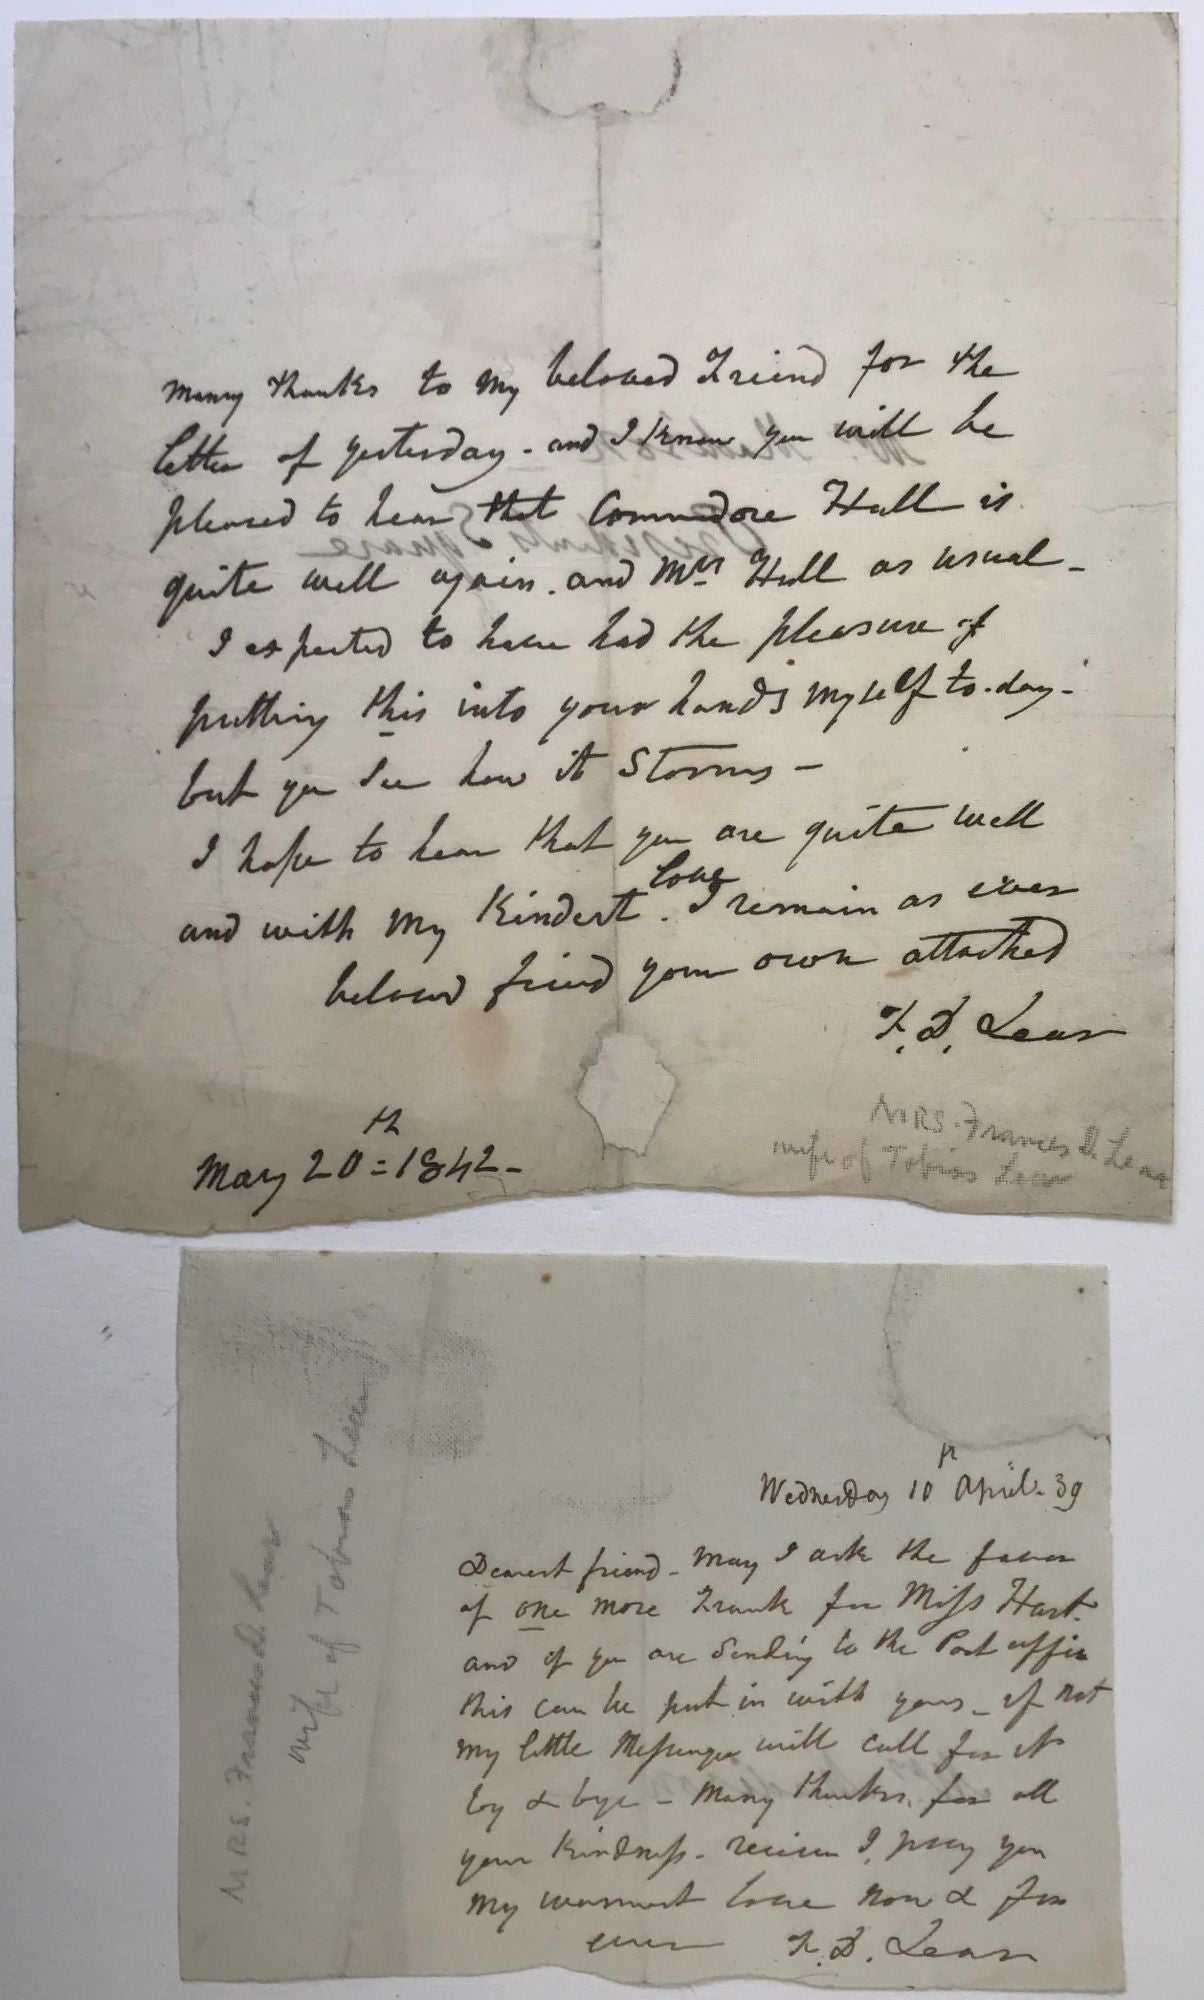 Many thanks to my beloved Friend for the
letter of yesterday - and I know you will be
pleased to hear that Commodore Hull is
quite well again. and Mrs Hull as usual -
I expected to have had the pleasure of
putting this into your hands myself to-day -
but you see how it Storms -
I hope to hear that you are quite well
and with my Kindest love. I remain as ever
beloved friend your own attached
F. D. Lear
May 20th = 1842 -
MRS. Frances D. Lear
wife of Tobias Lear
Presidents Square
Wednesday 10th April - 39
Dearest friend - May I ask the favor
of one more Frank for Miss Hart -
and if you are Sending to the Post office
this can be put in with yours - if not
my little Messenger will call for it
by & bye - Many thanks, for all
your Kindness - receive I pray you
my warmest love now & for
ever F. D. Lear
MRS. Frances D. Lear
wife of Tobias Lear